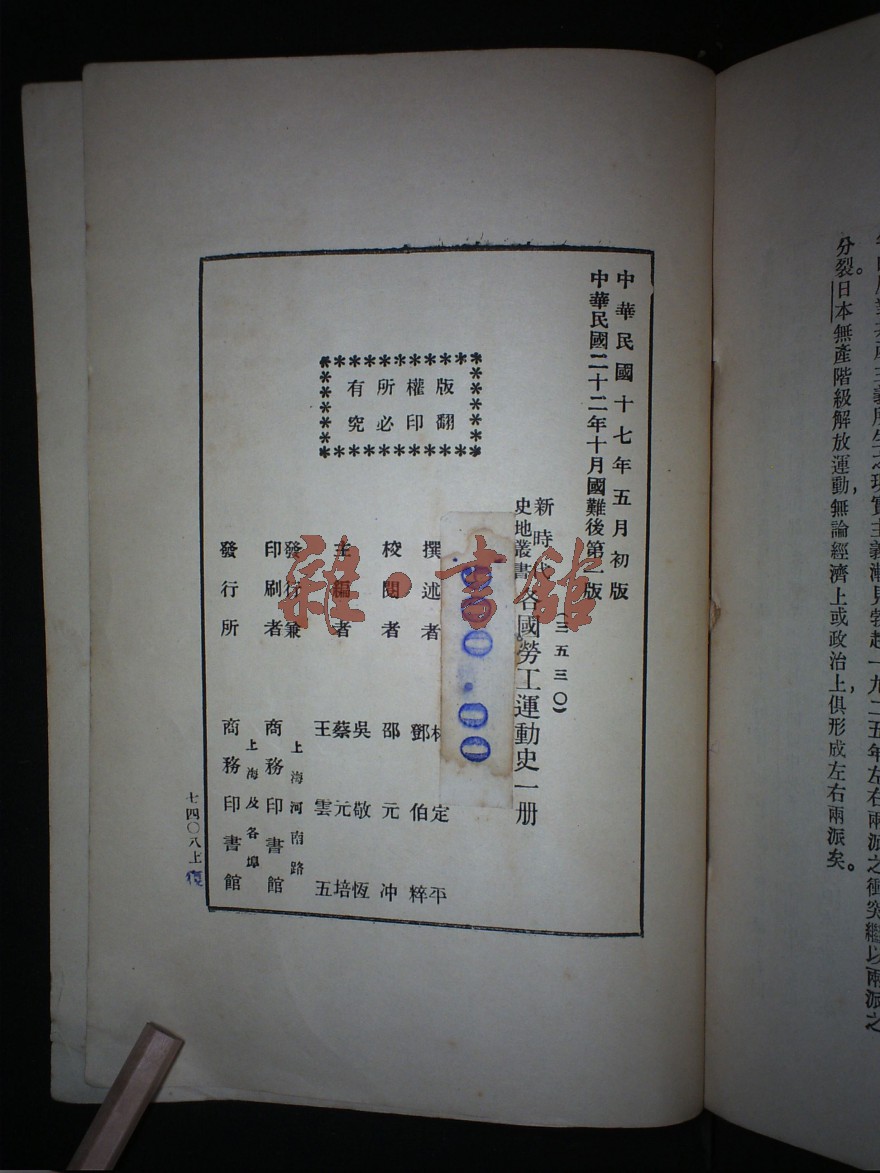 主義所生之現實主義漸見勃起一九二五年左右兩派之衝突繼以兩派之
分裂。日本無產階級解放運動，無論經濟上或政治上，俱形成左右兩派矣。
中華民國十七年五月初版
中華民國二十二年十月國難後第一版
(三五三〇)
新時代
史地叢書
各國勞工運動史一册
版權所有
翻印必究
撰述者
定平
鄧伯粹
校閱者
邵元冲
主編者
吳敬恆
蔡元培
王雲五
發行兼
印刷者
上海河南路
商務印書館
發行所
上海及各埠
商務印書館
七四〇八上
復
雜·書舘